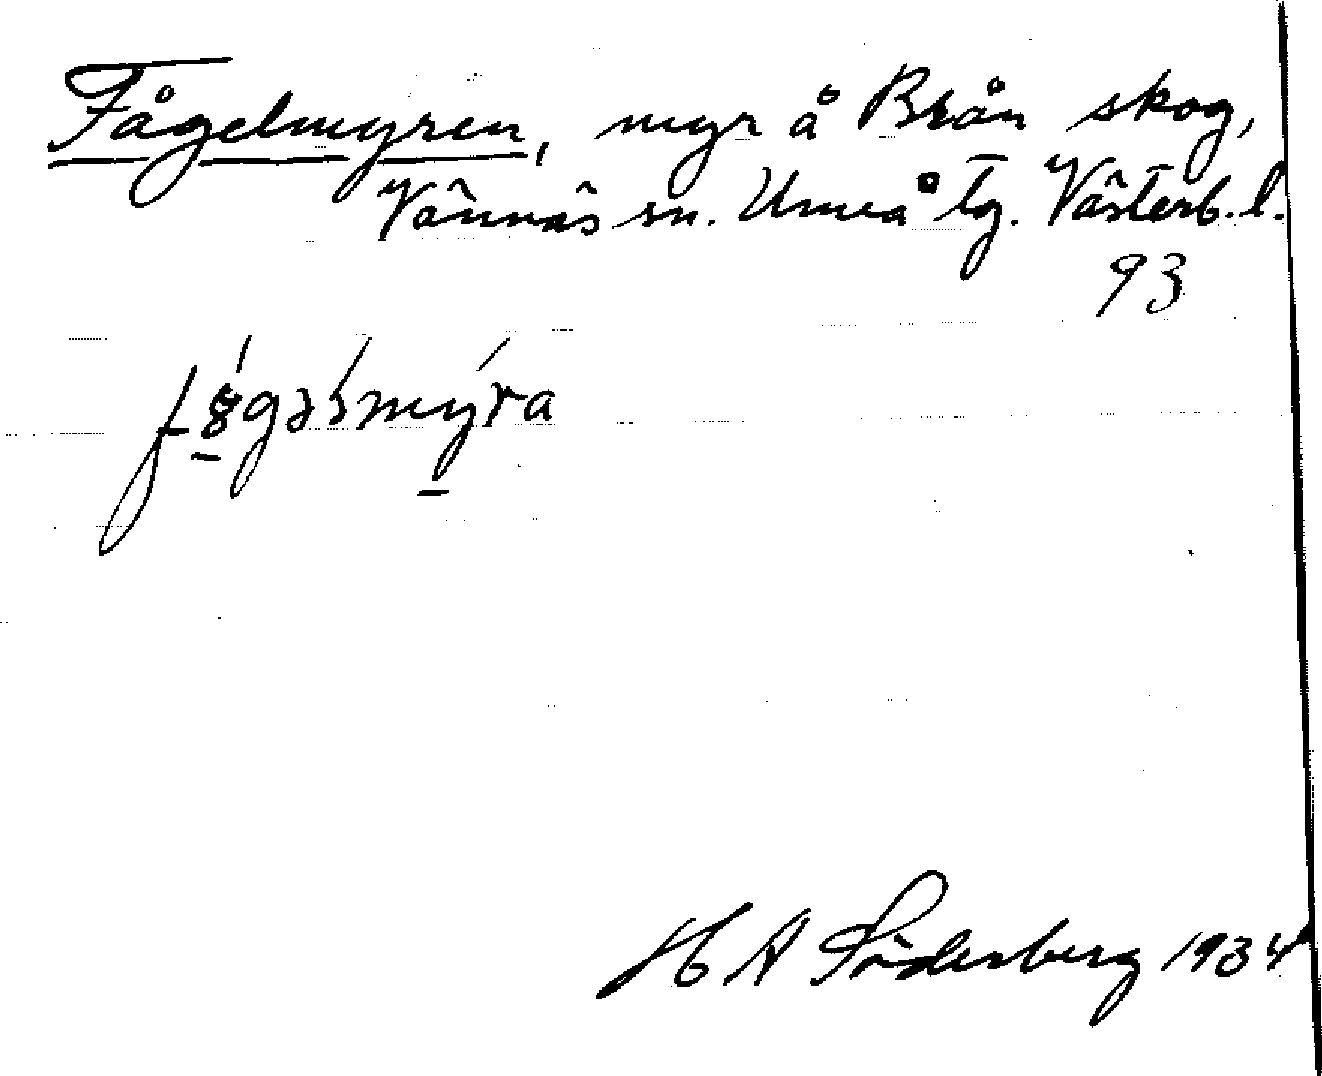 Fågelmyren, myr å Brån skog,
Vännäs sn. Umeå tg. Västerb. l.
93
H A Söderberg 1934